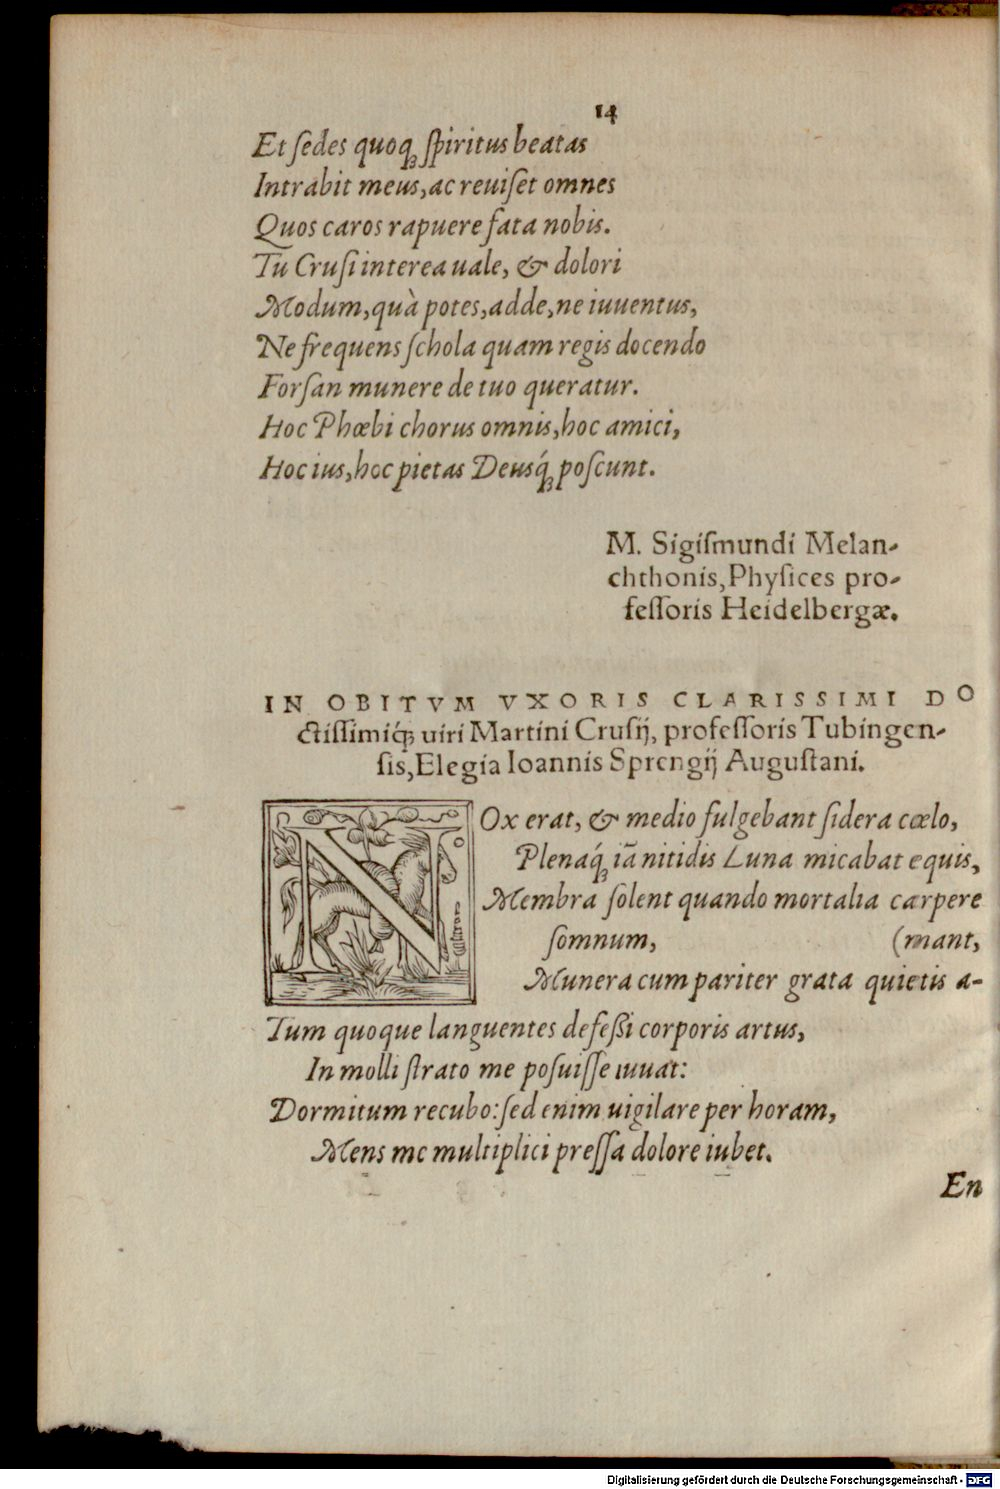 14
Et ſedes quoq́ꝫ ſpiritus beatas
Intrabit meus, ac reuiſet omnes
Quos caros rapuere fata nobis.
Tu Cruſi interea uale, & dolori
Modum, quà potes, adde, ne iuuentus,
Ne frequens ſchola quam regis docendo
Forſan munere de tuo queratur.
Hoc Phœbi chorus omnis, hoc amici,
Hoc ius, hoc pietas Deusq́ꝫ poſcunt.
M. Sigiſmundi Melan-
chthonis, Phyſices pro-
feſſoris Heidelbergæ.
IN OBITVM VXORIS CLARISSIMI DO
ctiſſimiq́ꝫ uiri Martini Cruſij, profeſſoris Tubingen-
ſis, Elegia Ioannis Sprengij Auguſtani.
NOx erat, & medio fulgebant ſidera cœlo,
Plenaq́ꝫ iã nitidis Luna micabat equis,
Membra ſolent quando mortalia carpere
ſomnum, (mant,
Munera cum pariter grata quietis a-
Tum quoque languentes defeßi corporis artus,
In molli ſtrato me poſuiſſe iuuat:
Dormitum recubo: ſed enim uigilare per horam,
Mens me multiplici preſſa dolore iubet.
En
Digitalisierung gefördert durch die Deutsche Forschungsgemeinschaft - DFG